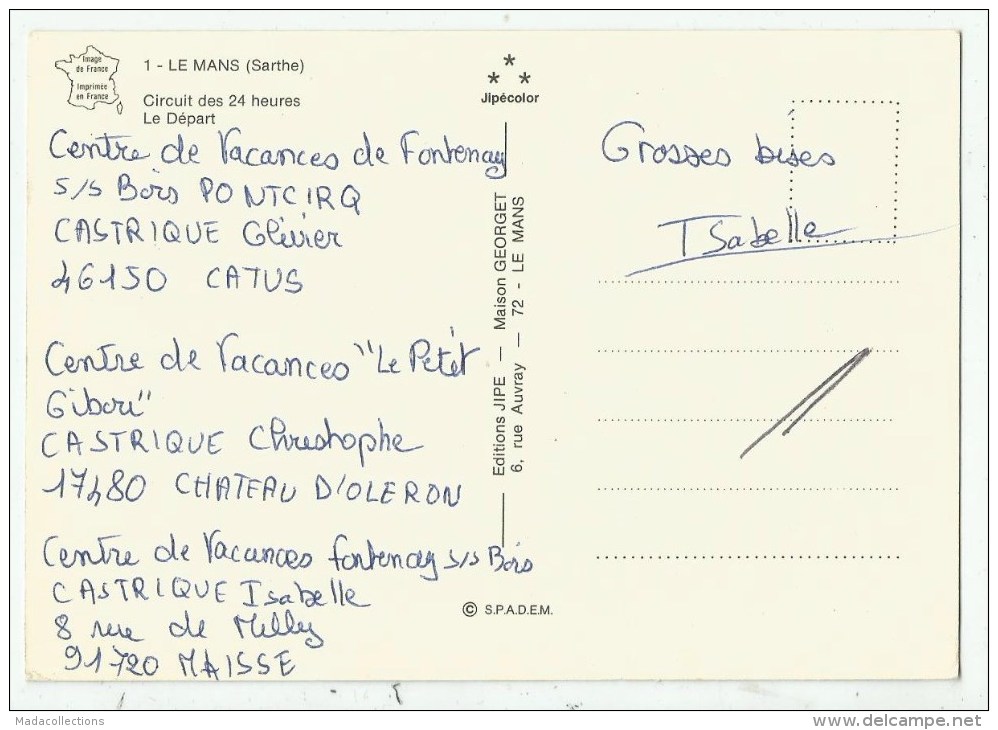 Image
de France
Imprimée
en France
1 - LE MANS (Sarthe)
Circuit des 24 heures
Le Départ
Jipécolor
Centre de Vacances de Fontenay
s/s Bois PONTCIRQ
CASTRIQUE Olivier
46150 CATUS
Centre de Vacances "Le Petit
Gibori"
CASTRIQUE Christophe
17480 CHATEAU D'OLERON
Centre de Vacances fontenay s/s Bois
CASTRIQUE Isabelle
8 rue de Milly
91720 MAISSE
Editions JIPE — Maison GEORGET
6, rue Auvray — 72 - LE MANS
© S.P.A.D.E.M.
Grosses bises
Isabelle
Madacollections
delcampe.net